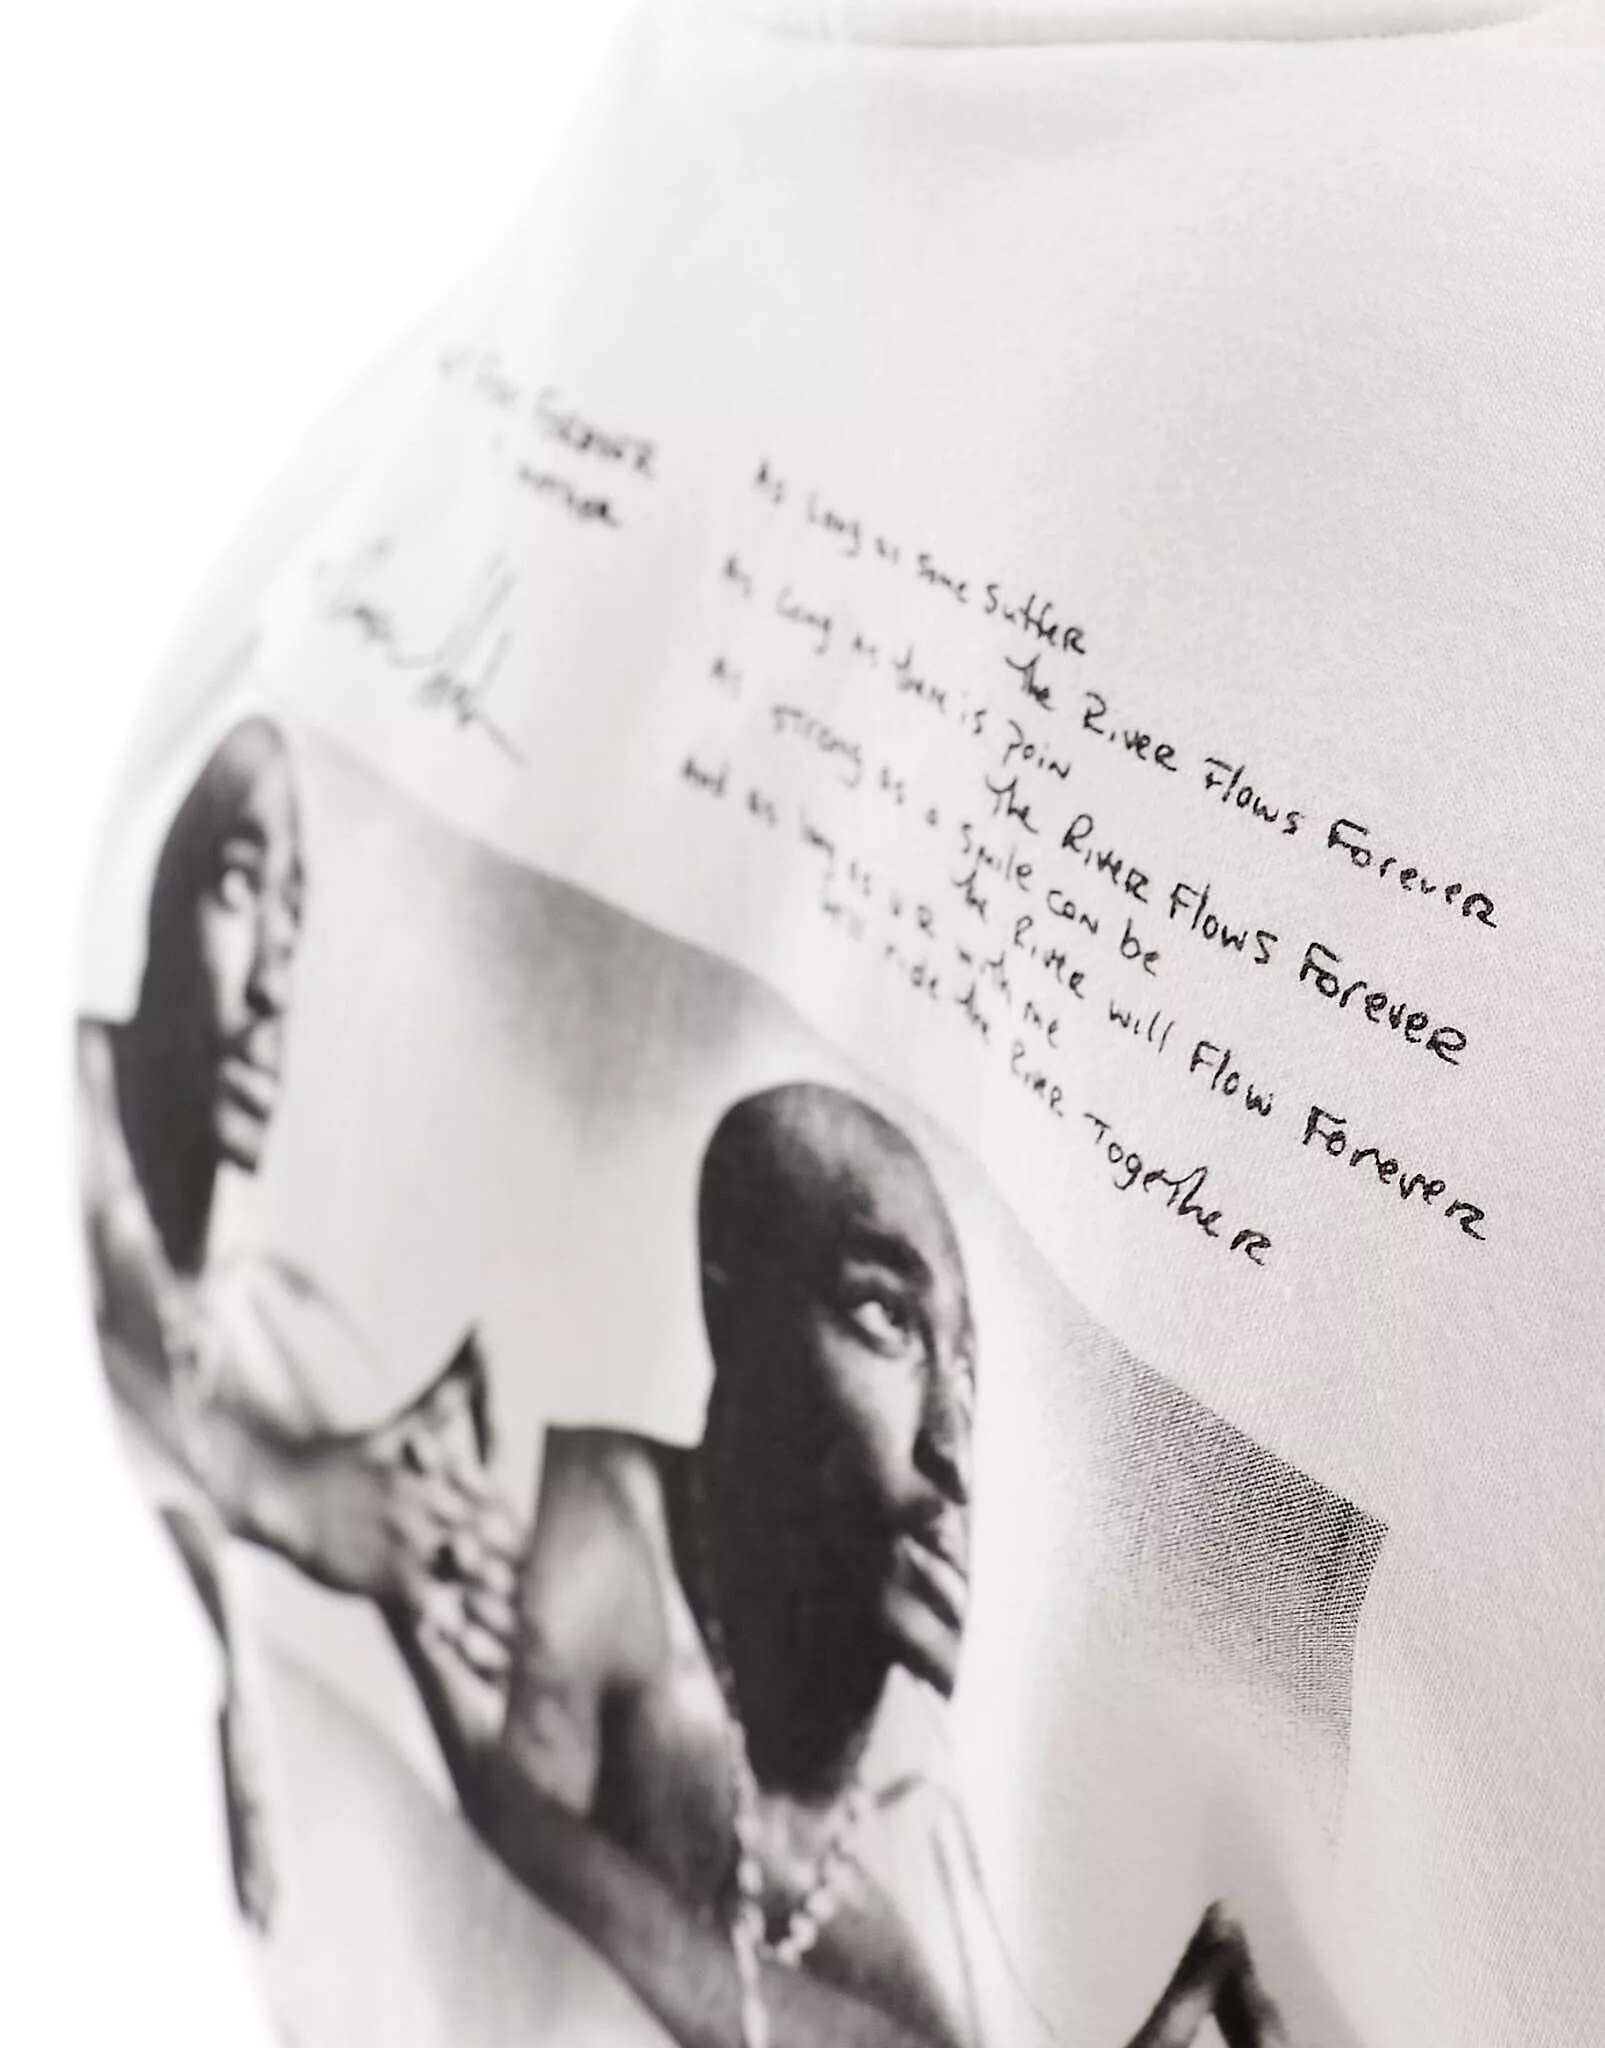 As long as some suffer
the River Flows Forever
As long as there is pain
the River Flows Forever
As strong as a smile can be
the River will Flow Forever
And as long as u R with me
we'll ride the River Together